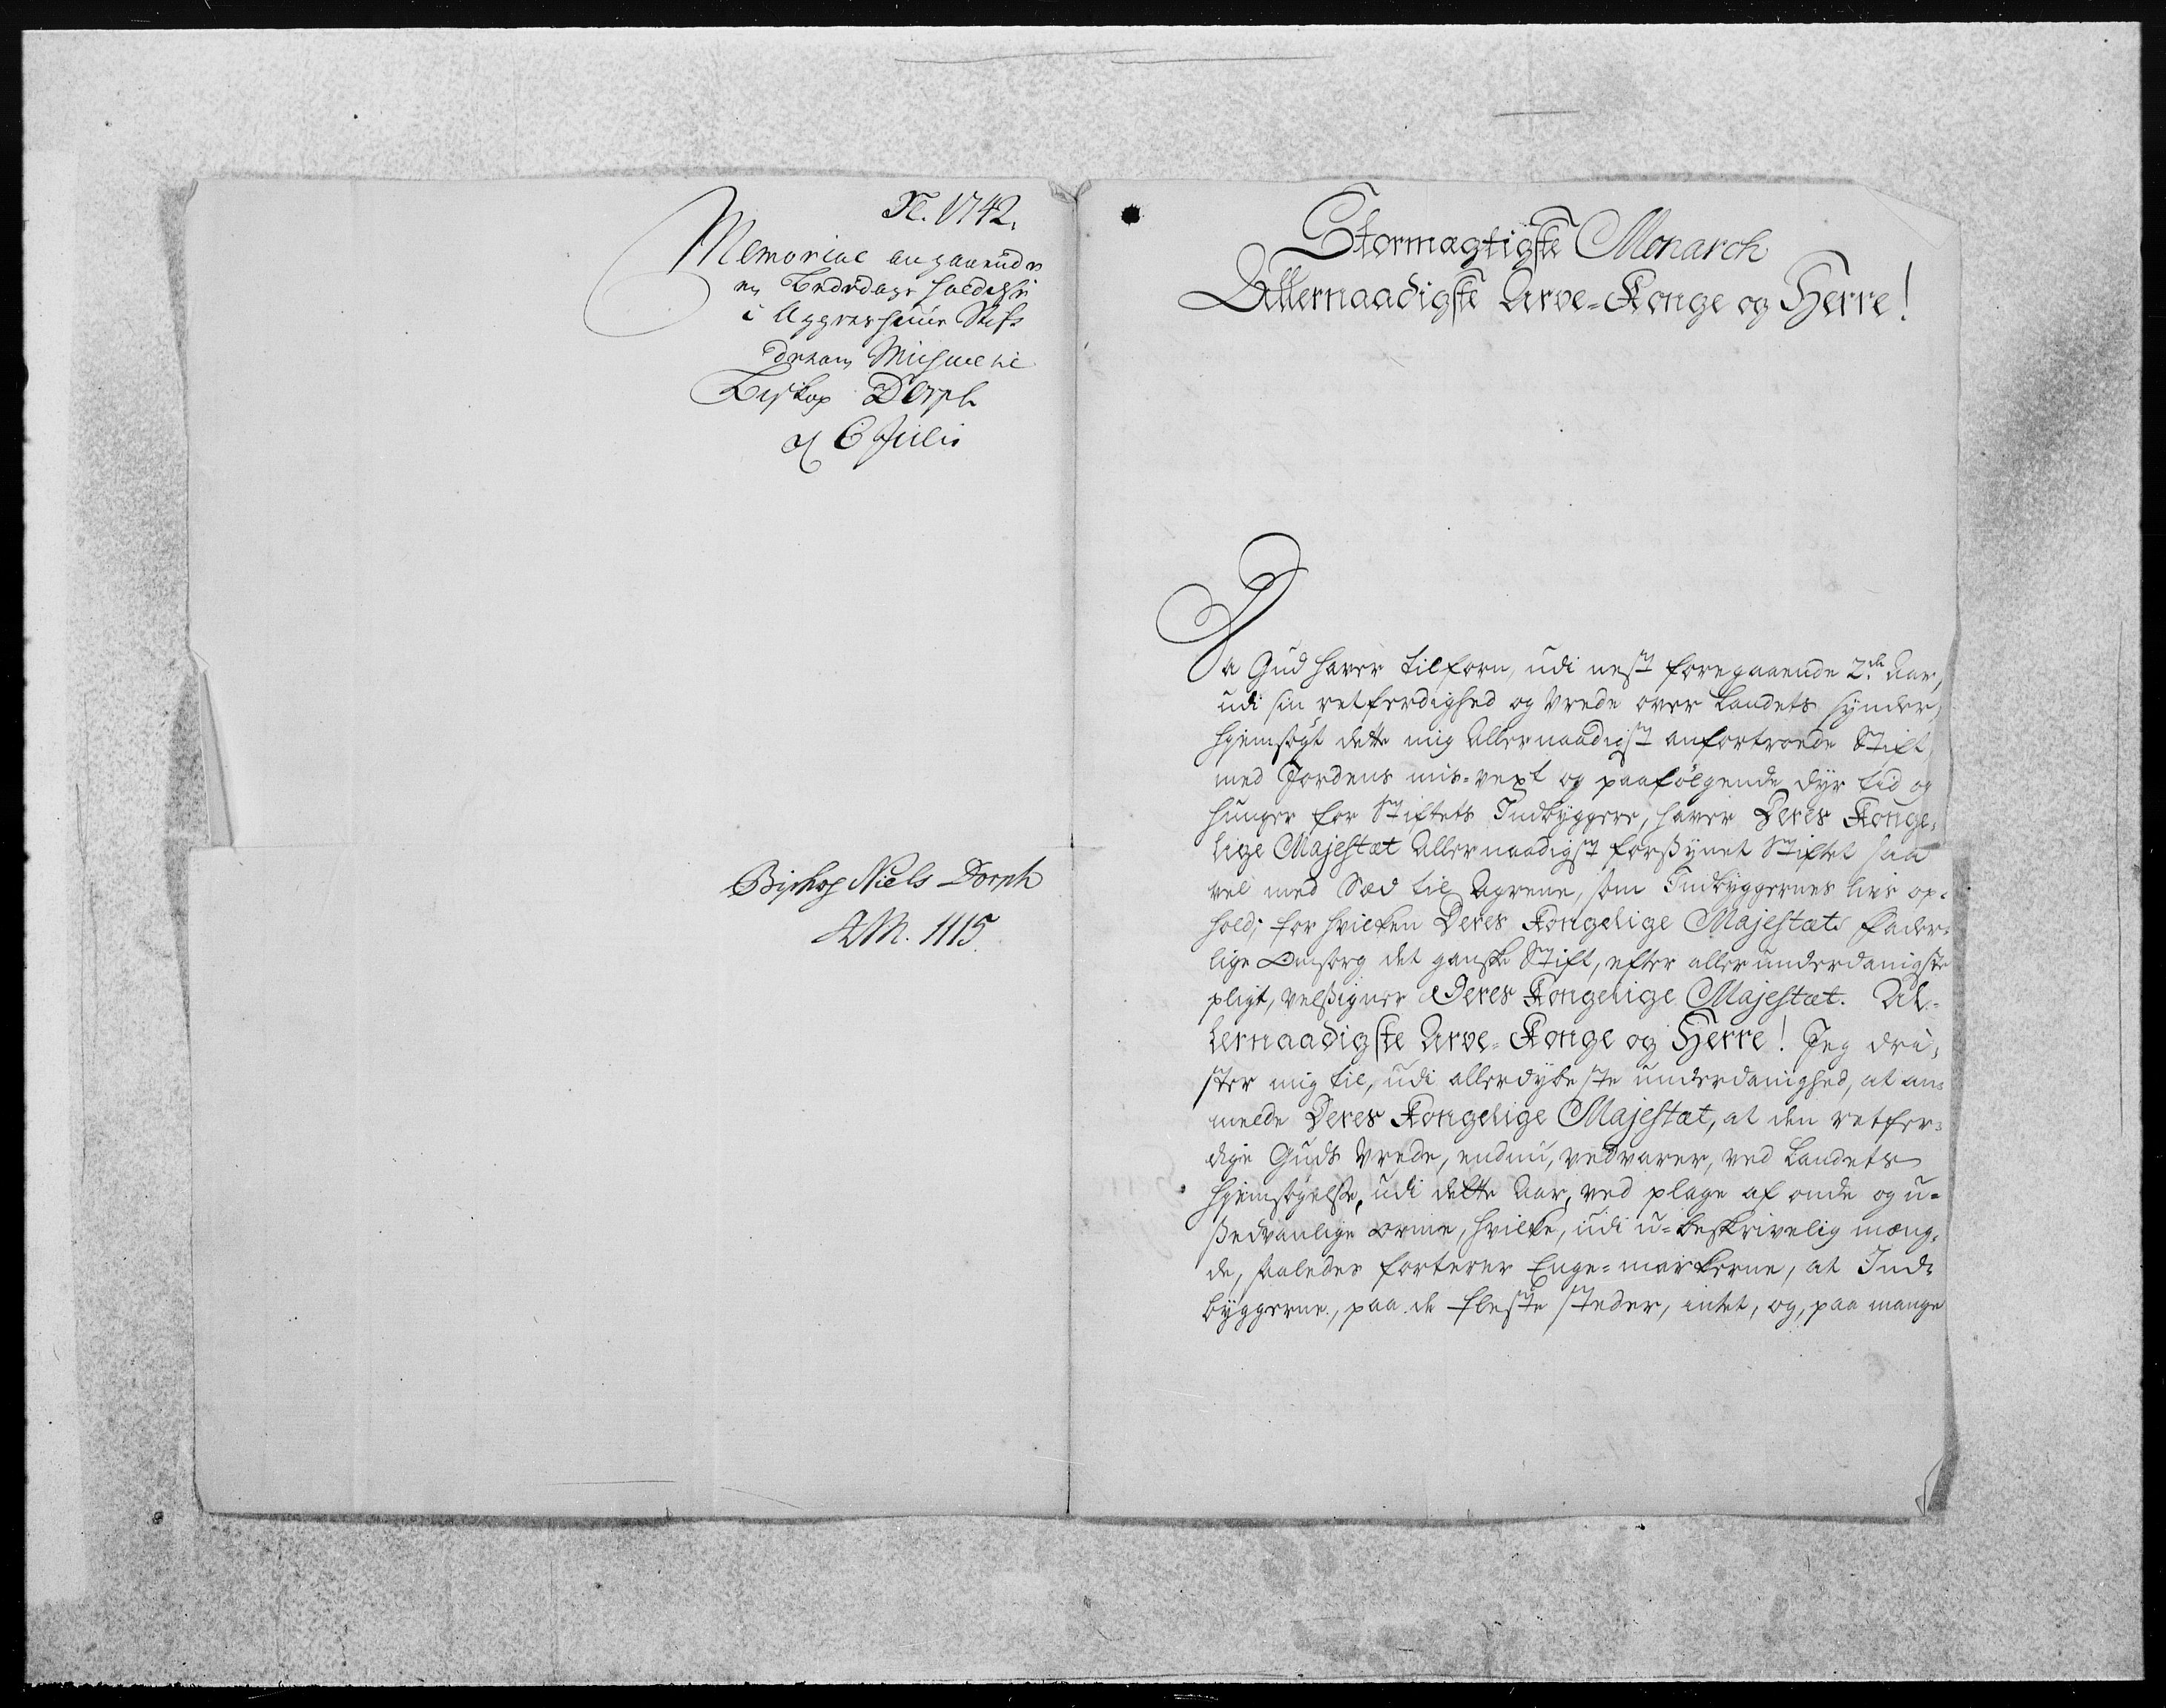 N. 1742.
Memorial angaaende
en Bededags holdelse
i Aggershuus Stift
Biskop Dorph
d 6 Julii
Biskop Niels Dorph
AM. 1115.
Stormægtigste Monarch
Allernaadigste Arve-Konge og Herre!
Da Gud haver tilforn, udi nest foregaaende 2de Aar,
udi sin retferdighed og Vrede over Landets synder,
hjemsøgt dette mig Allernaadigst anfortroede Stift,
med Jordens mis-vext og paafølgende dyr tid og
hunger for Stiftets Indbyggere, haver Deres Konge-
lige Majestæt Allernaadigst forsÿnet Stiftet saa
vel med Sæd til Agrene, som Indbyggernes livs op-
hold; for hvilken Deres Kongelige Majestæts Fader-
lige Omsorg det ganske Stift, efter aller underdanigste
pligt, velsigner Deres Kongelige Majestæt. Al-
lernaadigste Arve-Konge og Herre! Jeg dri-
ster mig til, udi allerdybeste underdanighed, at an-
melde Deres Kongelige Majestæt, at den retfer-
dige Guds Vrede, endnu, vedvarer, ved Landets
hjemsøgelse, udi dette Aar, ved plage af onde og u-
sedvanlige orme, hvilke, udi u-beskrivelig mæng-
de, saaledes forterer Enge-markerne, at Ind-
byggerne, paa de fleste steder, intet, og, paa mange